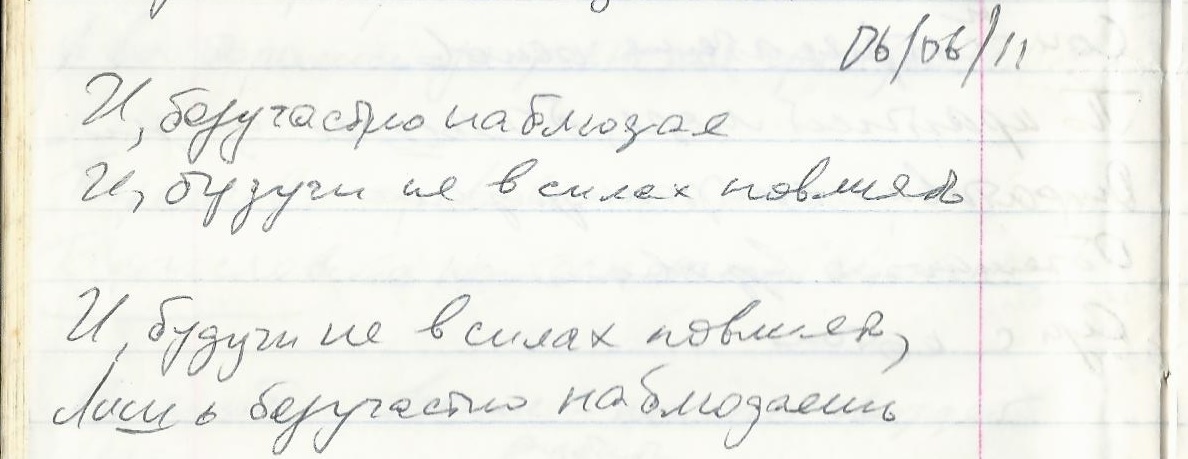 06/06/11
И, безучастно наблюдая
И, будучи не в силах повлиять
И, будучи не в силах повлиять,
Лишь безучастно наблюдаешь